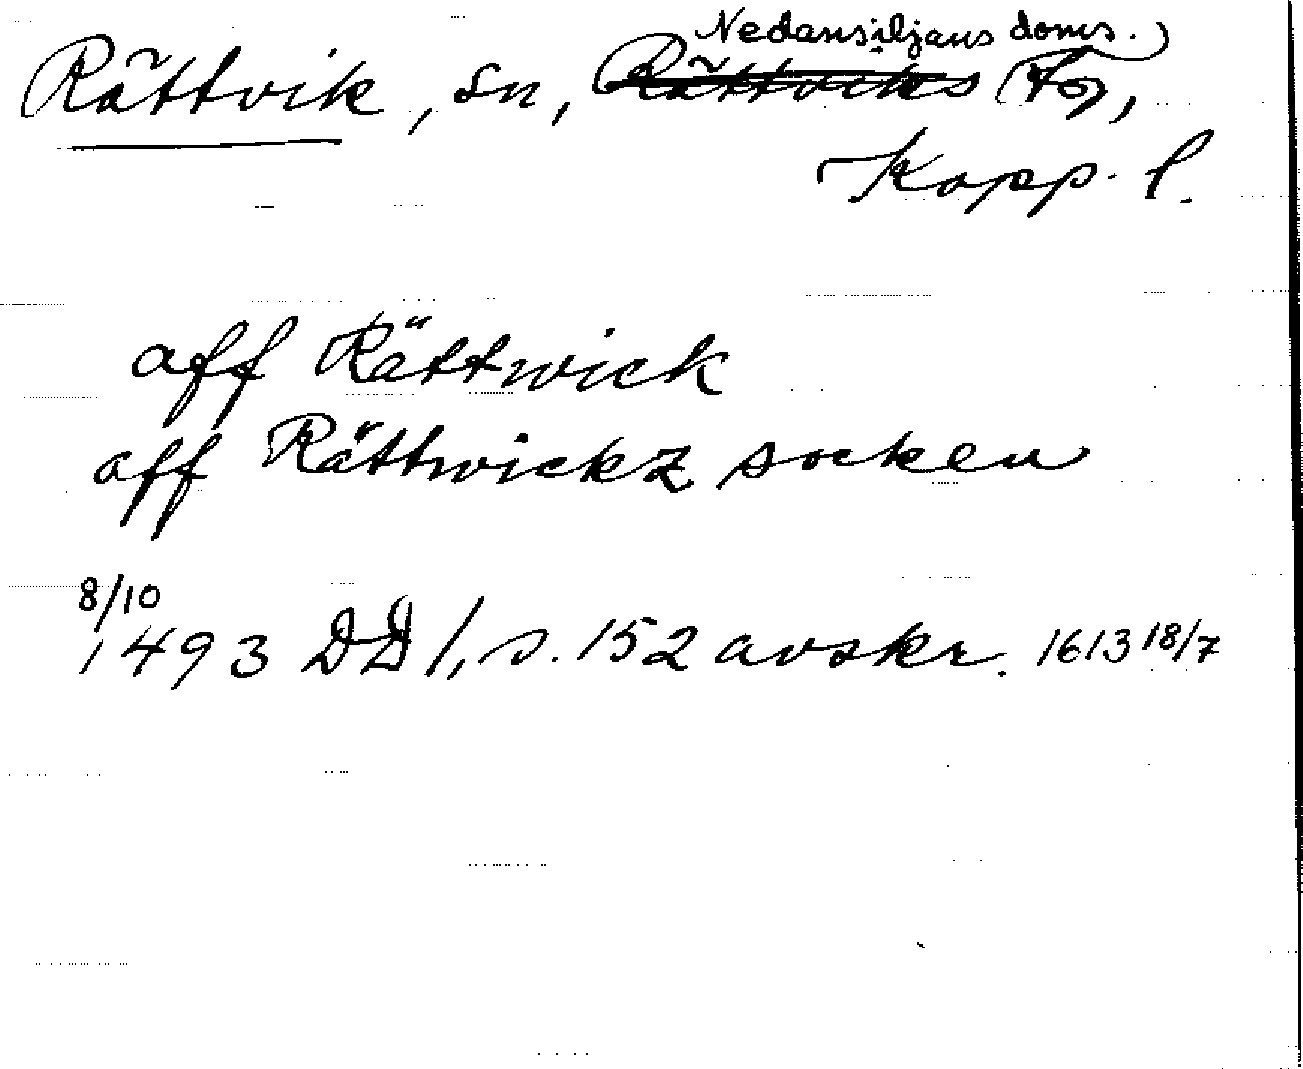 Nedansiljans doms.)
Rättvik, sn, Rättviks (tg),
Kopp. l.
aff Rättwick
aff Rättwickz socken
8/10
1493 DD 1, s. 152 avskr. 1613 18/7